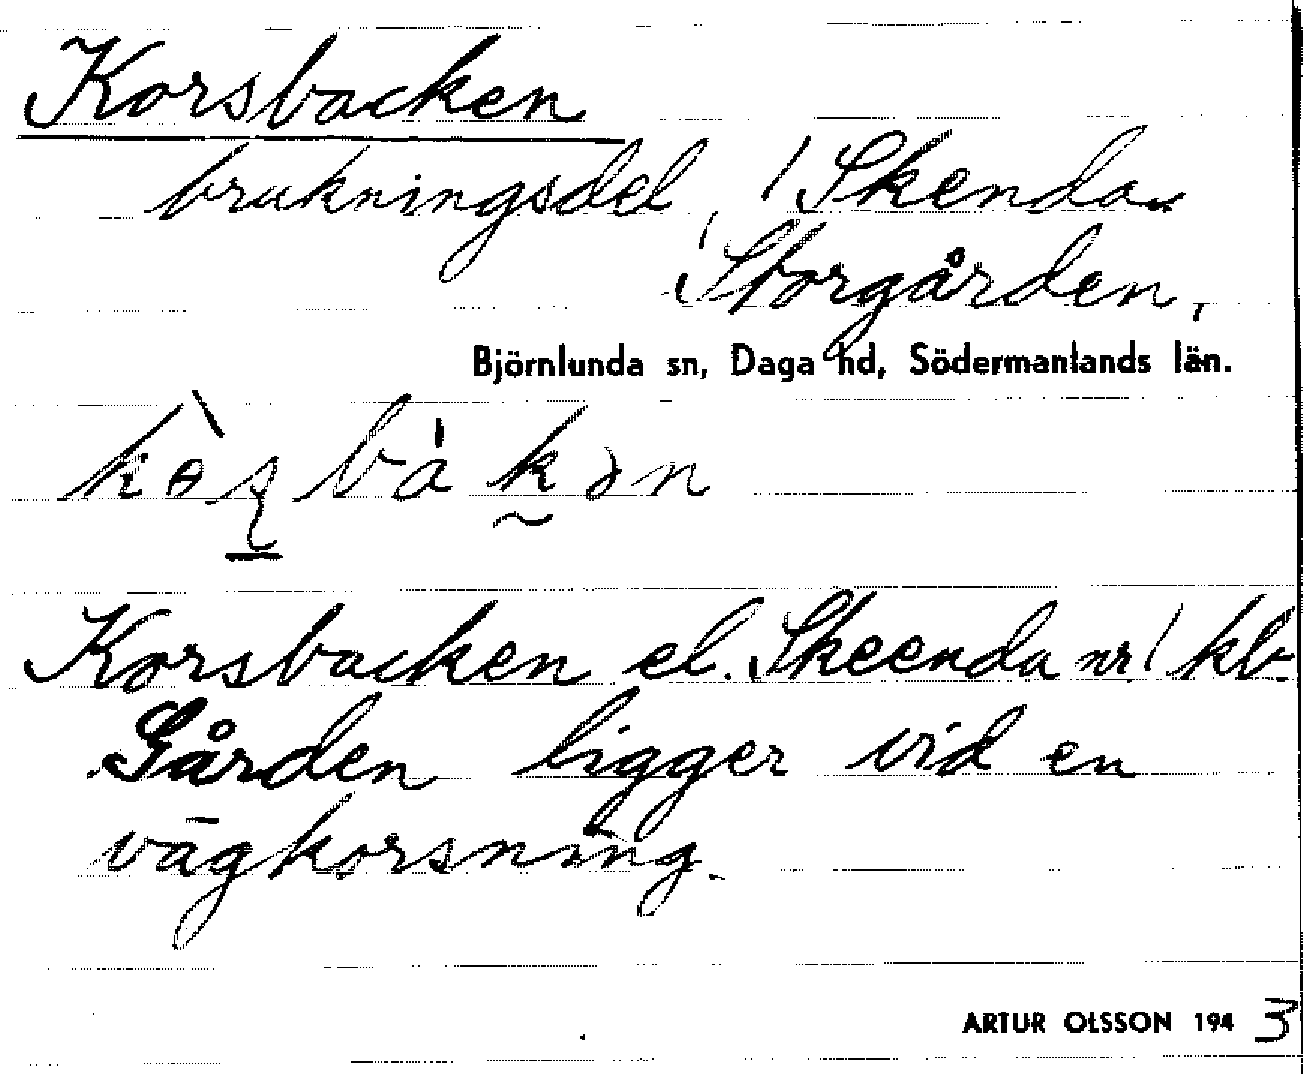 Korsbacken
brukningsdel, 1 Skenda.
1 Storgården,
Björnlunda sn, Daga hd, Södermanlands län.
Korsbacken el. Skeenda nr 1 kb
Gården ligger vid en
vägkorsning.
ARTUR OLSSON 1943